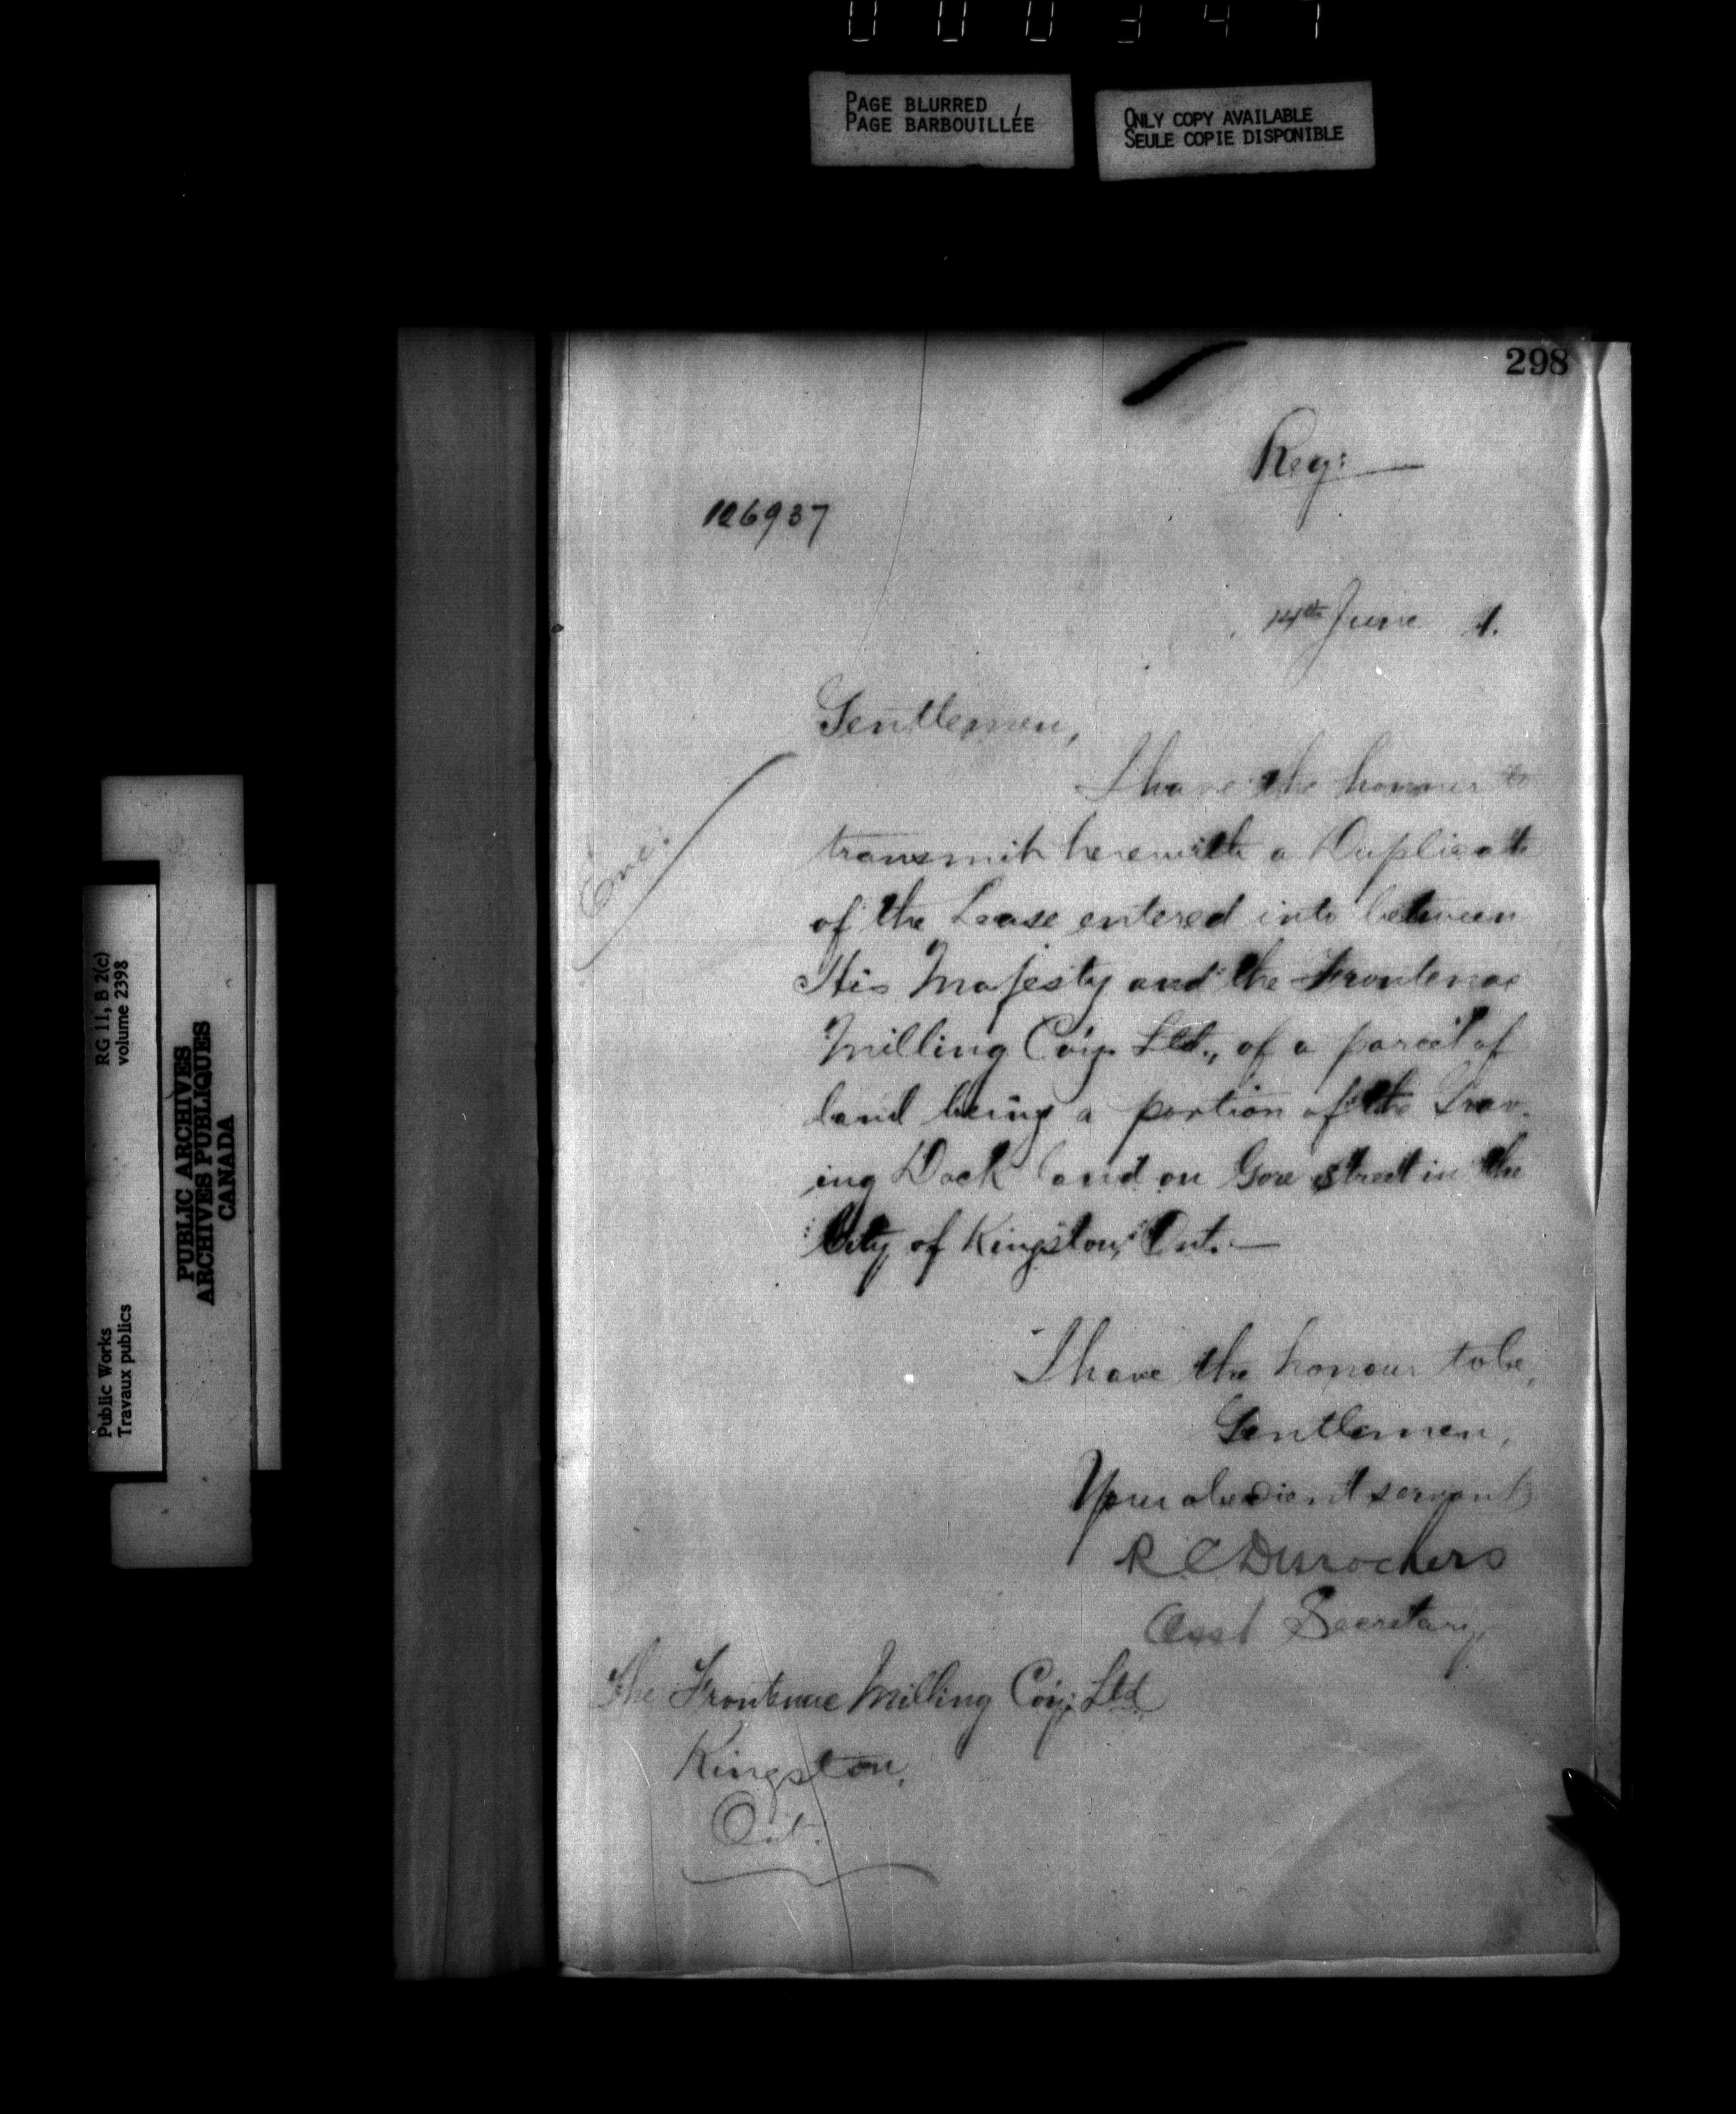 000347
PAGE BLURRED
PAGE BARBOUILLÉE
ONLY COPY AVAILABLE
SEULE COPIE DISPONIBLE
298
Reg:
126937
14th June 1.
Gentlemen,
Enc:
I have the honour to
transmit herewith a Duplicate
of the Lease entered into between
His Majesty and the Frontenac
Milling Coy. Ltd., of a parcel of
land being a portion of the Grav-
ing Dock land on Gore street in the
City of Kingston, Ont.—
I have the honour to be,
Gentlemen,
Your obedient servant
R C Desrochers
Asst Secretary
The Frontenac Milling Coy: Ltd
Kingston,
Ont.
RG 11, B 2(c)
volume 2398
PUBLIC ARCHIVES
ARCHIVES PUBLIQUES
CANADA
Public Works
Travaux publics